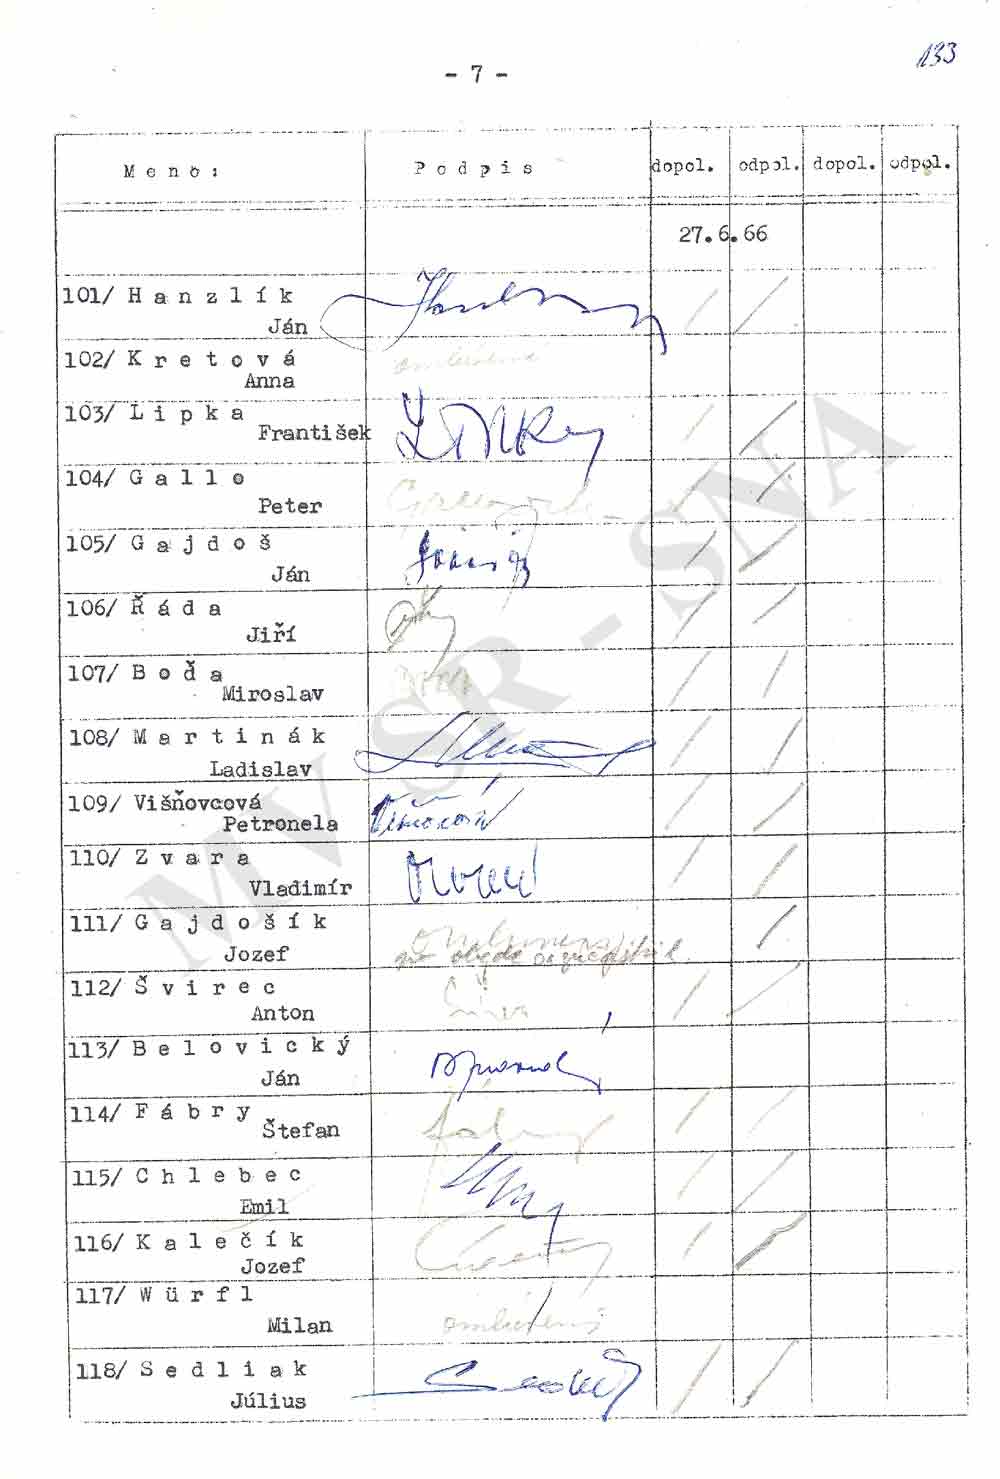 133
- 7 -
Meno: Podpis dopol. odpol. dopol. odpol.
27.6.66
101/ Hanzlík
Ján
102/ Kretová
Anna
103/ Lipka
František
104/ Gallo
Peter
105/ Gajdoš
Ján
106/ Řáda
Jiří
107/ Boďa
Miroslav
108/ Martinák
Ladislav
109/ Višňovcová
Petronela
110/ Zvara
Vladimír
111/ Gajdošík
Jozef
112/ Švirec
Anton
113/ Belovický
Ján
114/ Fábry
Štefan
115/ Chlebec
Emil
116/ Kalečík
Jozef
117/ Würfl
Milan
118/ Sedliak
Július
MVSR - SNA